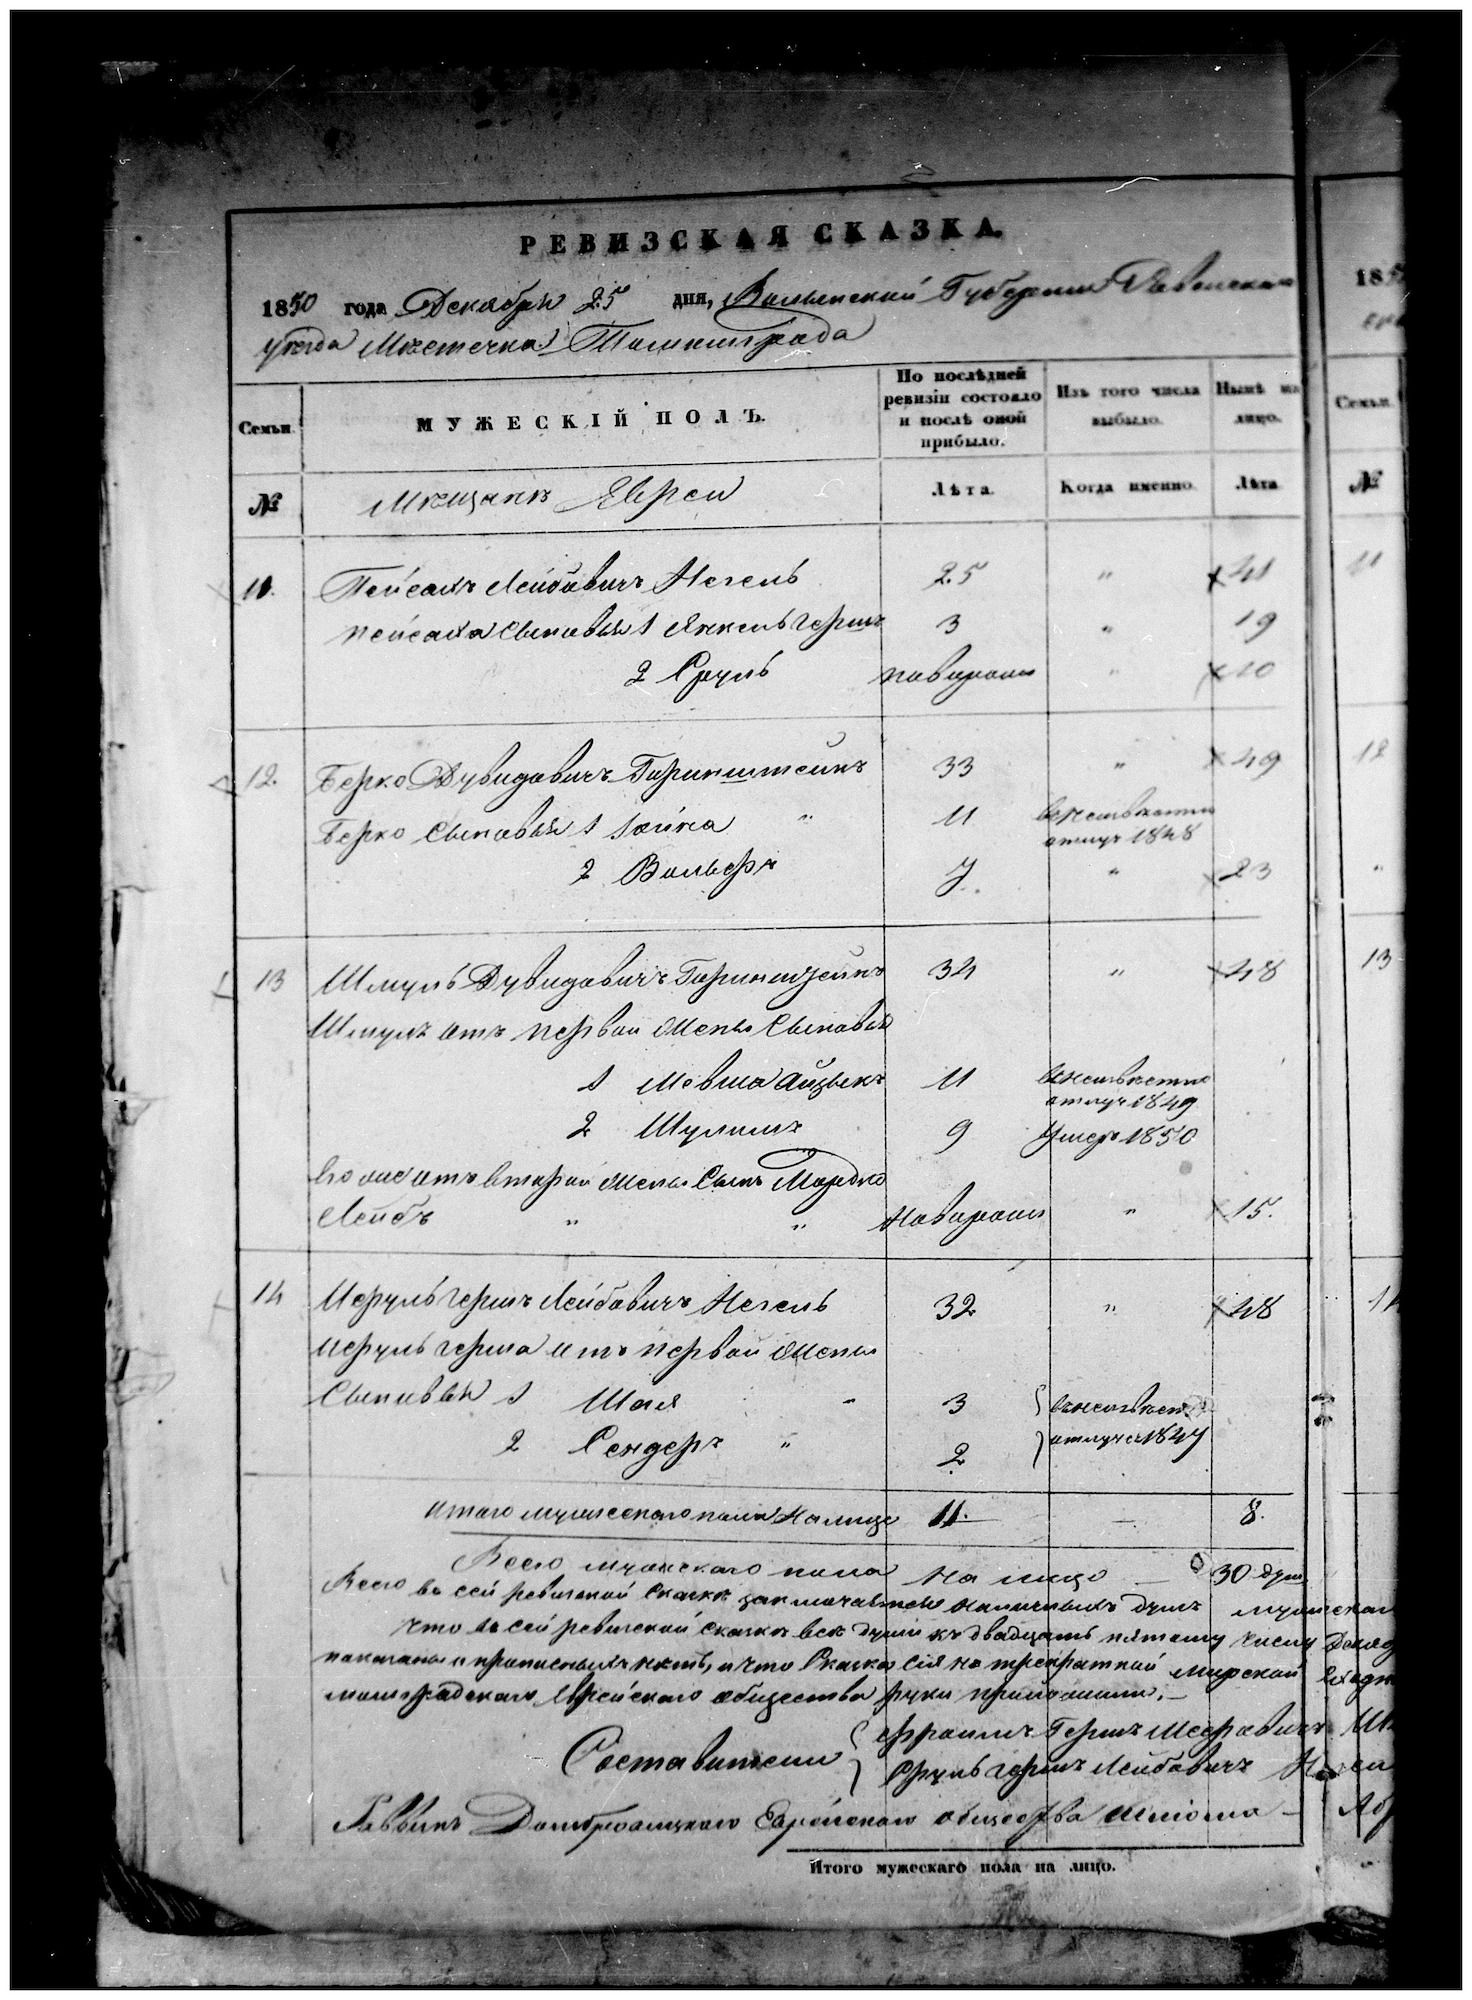 РЕВИЗСКАЯ СКАЗКА.
1850 года Декабря 25 дня, Волынской Губернии Ровенскаго
уезда Местечка Томашграда
Семьи.
МУЖЕСКІЙ ПОЛЪ.
По послѣдней ревизіи состояло и послѣ оной прибыло.
Изъ того числа выбыло.
Нынѣ на лицо.
№
Мещане Евреи
Лѣта.
Когда именно.
Лѣта
11. Пейсахъ Лейбовичъ Негель 25 " 41
Пейсаха сыновья 1 Янкель Гершъ 3 " 19
2 Сруль новорож " 10
12. Берко Дувидовичъ Горинштейнъ 33 " 49
Берко сыновья 1 " 11 в неизвестн
отлуч 1848
2 Вольфъ 7. " 23
13 Шмуль Дувидовичъ Горинштейнъ 32 " 48
Шмуля отъ первой жены сыновья
1 Мовша Айзыкъ 11 в неизвестн
отлуч 1849
2 Шулимъ 9 Умеръ 1850
его же отъ второй жены сынъ Мордко
Лейбъ " " новорож " 15.
14 Исруль Гершъ Лейбовичъ Негель 32 " 48
Исруль Герша отъ первой жены
сыновья 1 Шая " 3 в неизвест
2 Сендеръ " 2 отлуч 1847
Итого мужескаго пола налицо 11. — 8.
Всего мужескаго пола на лицо — 30 душ
Всего въ сей ревизской сказке заключается наличныхъ душъ мужескаго
что въ сей ревизской сказке все души къ двадцать пятому числу Декаб
показаны и прописныхъ нетъ, и что сказка сія на трекратной мирской
машградскаго Еврейскаго общества руки приложили. —
Составители Фроимъ Гершъ
Сруль Гершъ Лейбовичъ
Раввинъ Домбровицкаго Еврейскаго общества
Итого мужескаго пола на лицо.
185
Семьи.
№
11
12
13